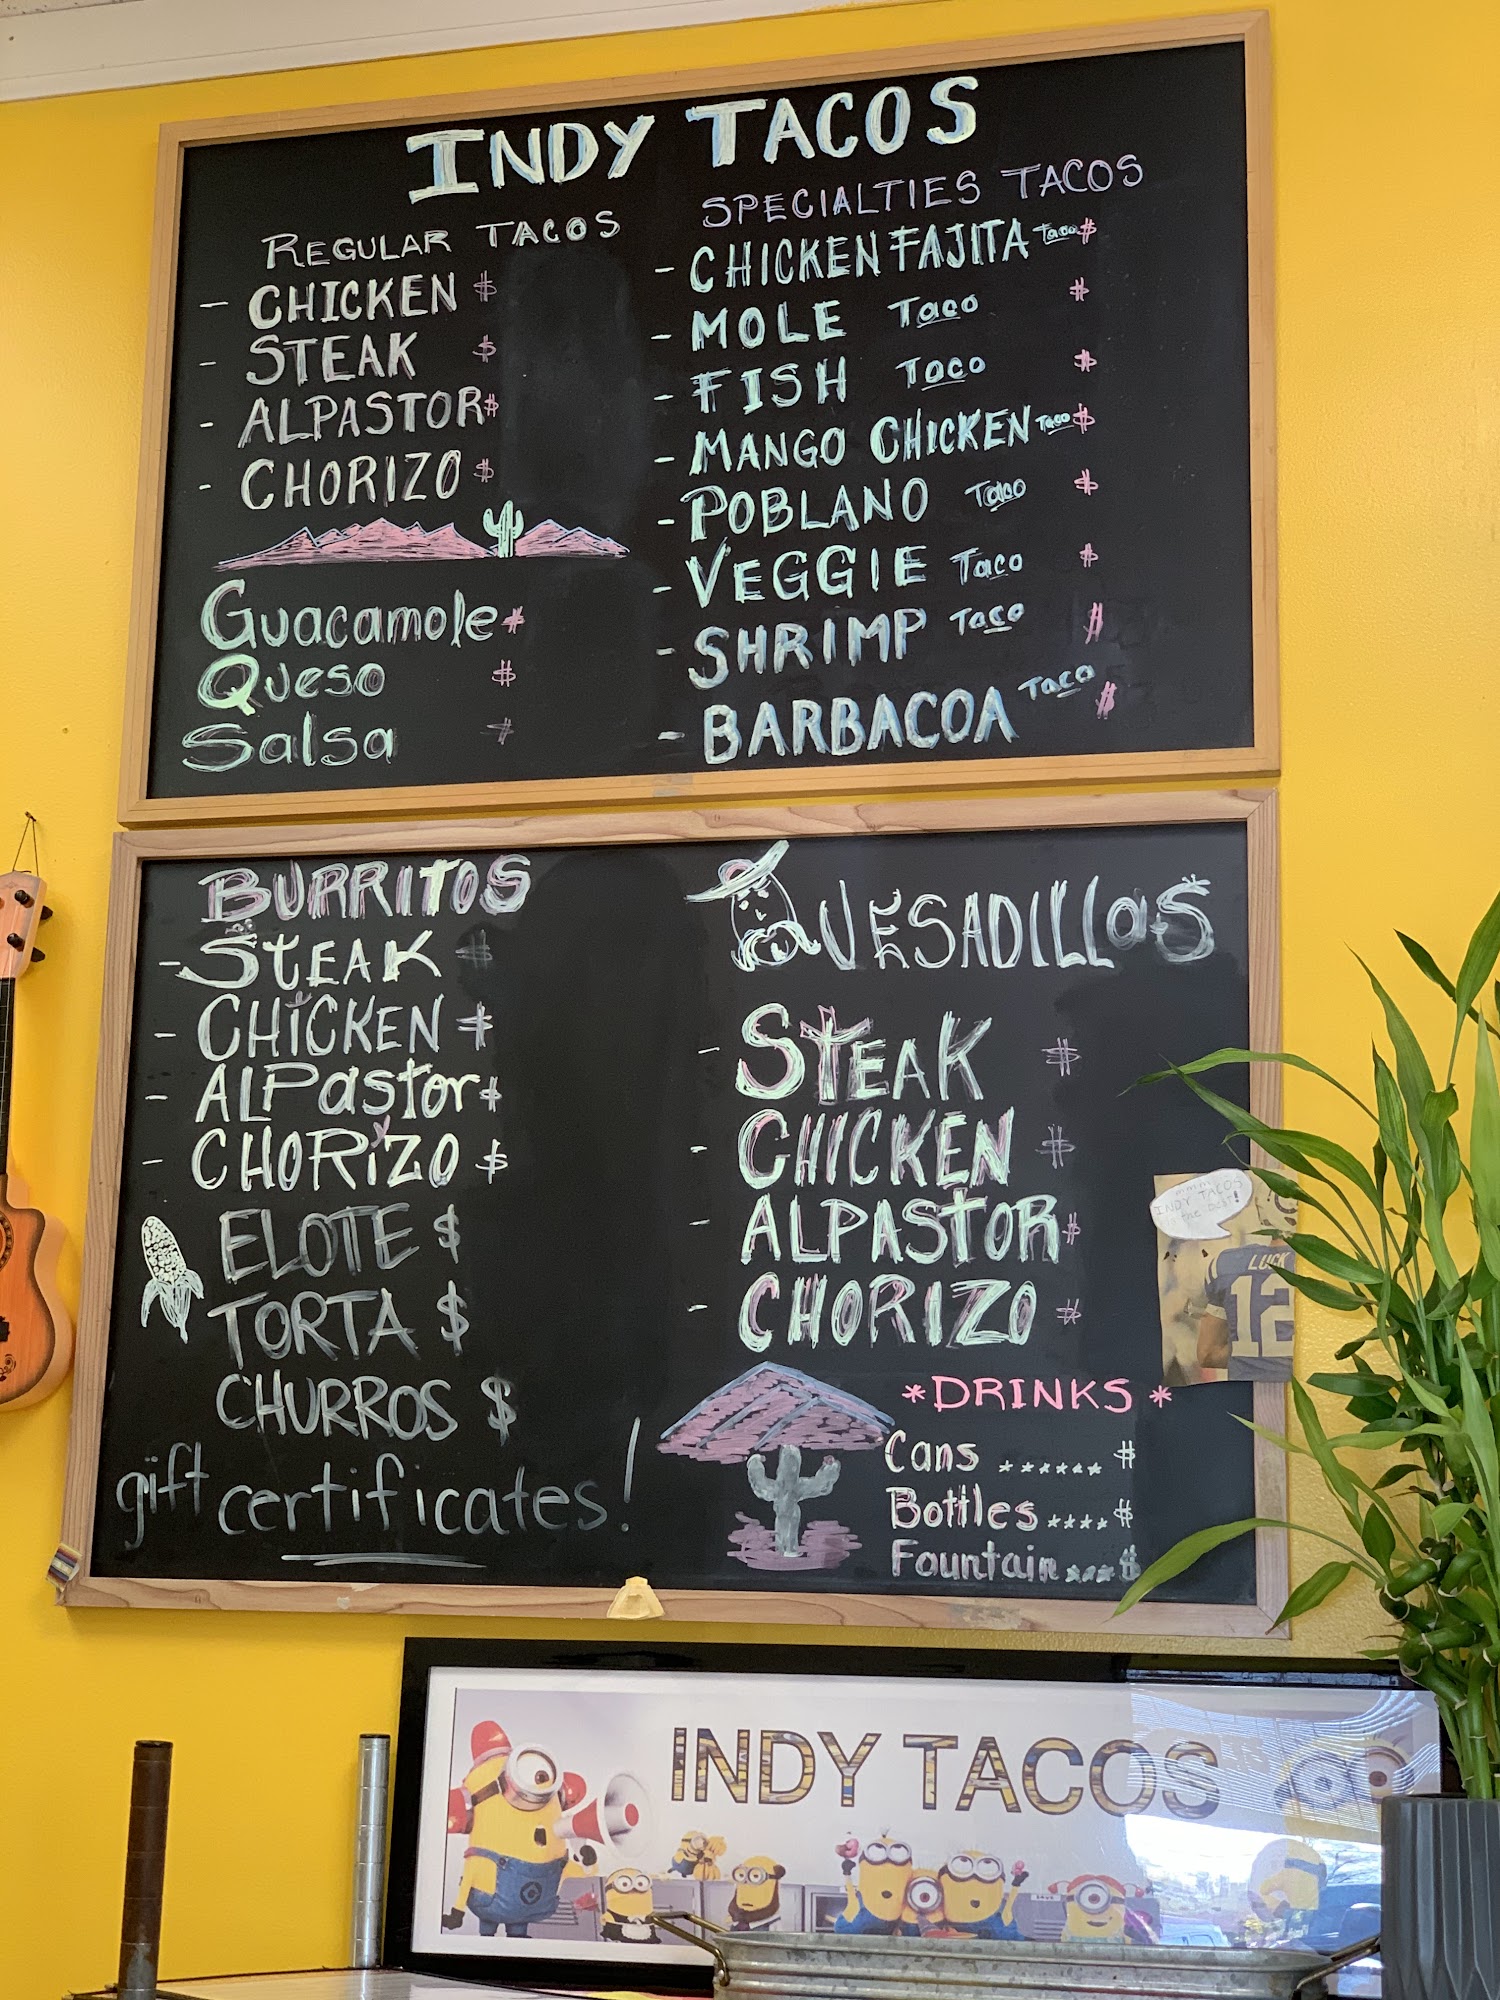 INDY TACOS
REGULAR TACOS
- CHICKEN $
- STEAK $
- ALPASTOR $
- CHORIZO $
Guacamole $
Queso $
Salsa $
SPECIALTIES TACOS
- CHICKEN FAJITA Taco $
- MOLE Taco $
- FISH Taco $
- MANGO CHICKEN Taco $
- POBLANO Taco $
- VEGGIE Taco $
- SHRIMP Taco $
- BARBACOA Taco $
BURRITOS
- STEAK $
- CHICKEN $
- ALPastor $
- CHORiZO $
ELOTE $
TORTA $
CHURROS $
gift certificates!
QUESADILLaS
- STEAK $
- CHICKEN $
- ALPASTOR $
- CHORIZO $
*DRINKS*
Cans ...... $
Bottles .... $
Fountain .... $
mmm
INDY TACOS
is the best!
LUCK
12
INDY TACOS